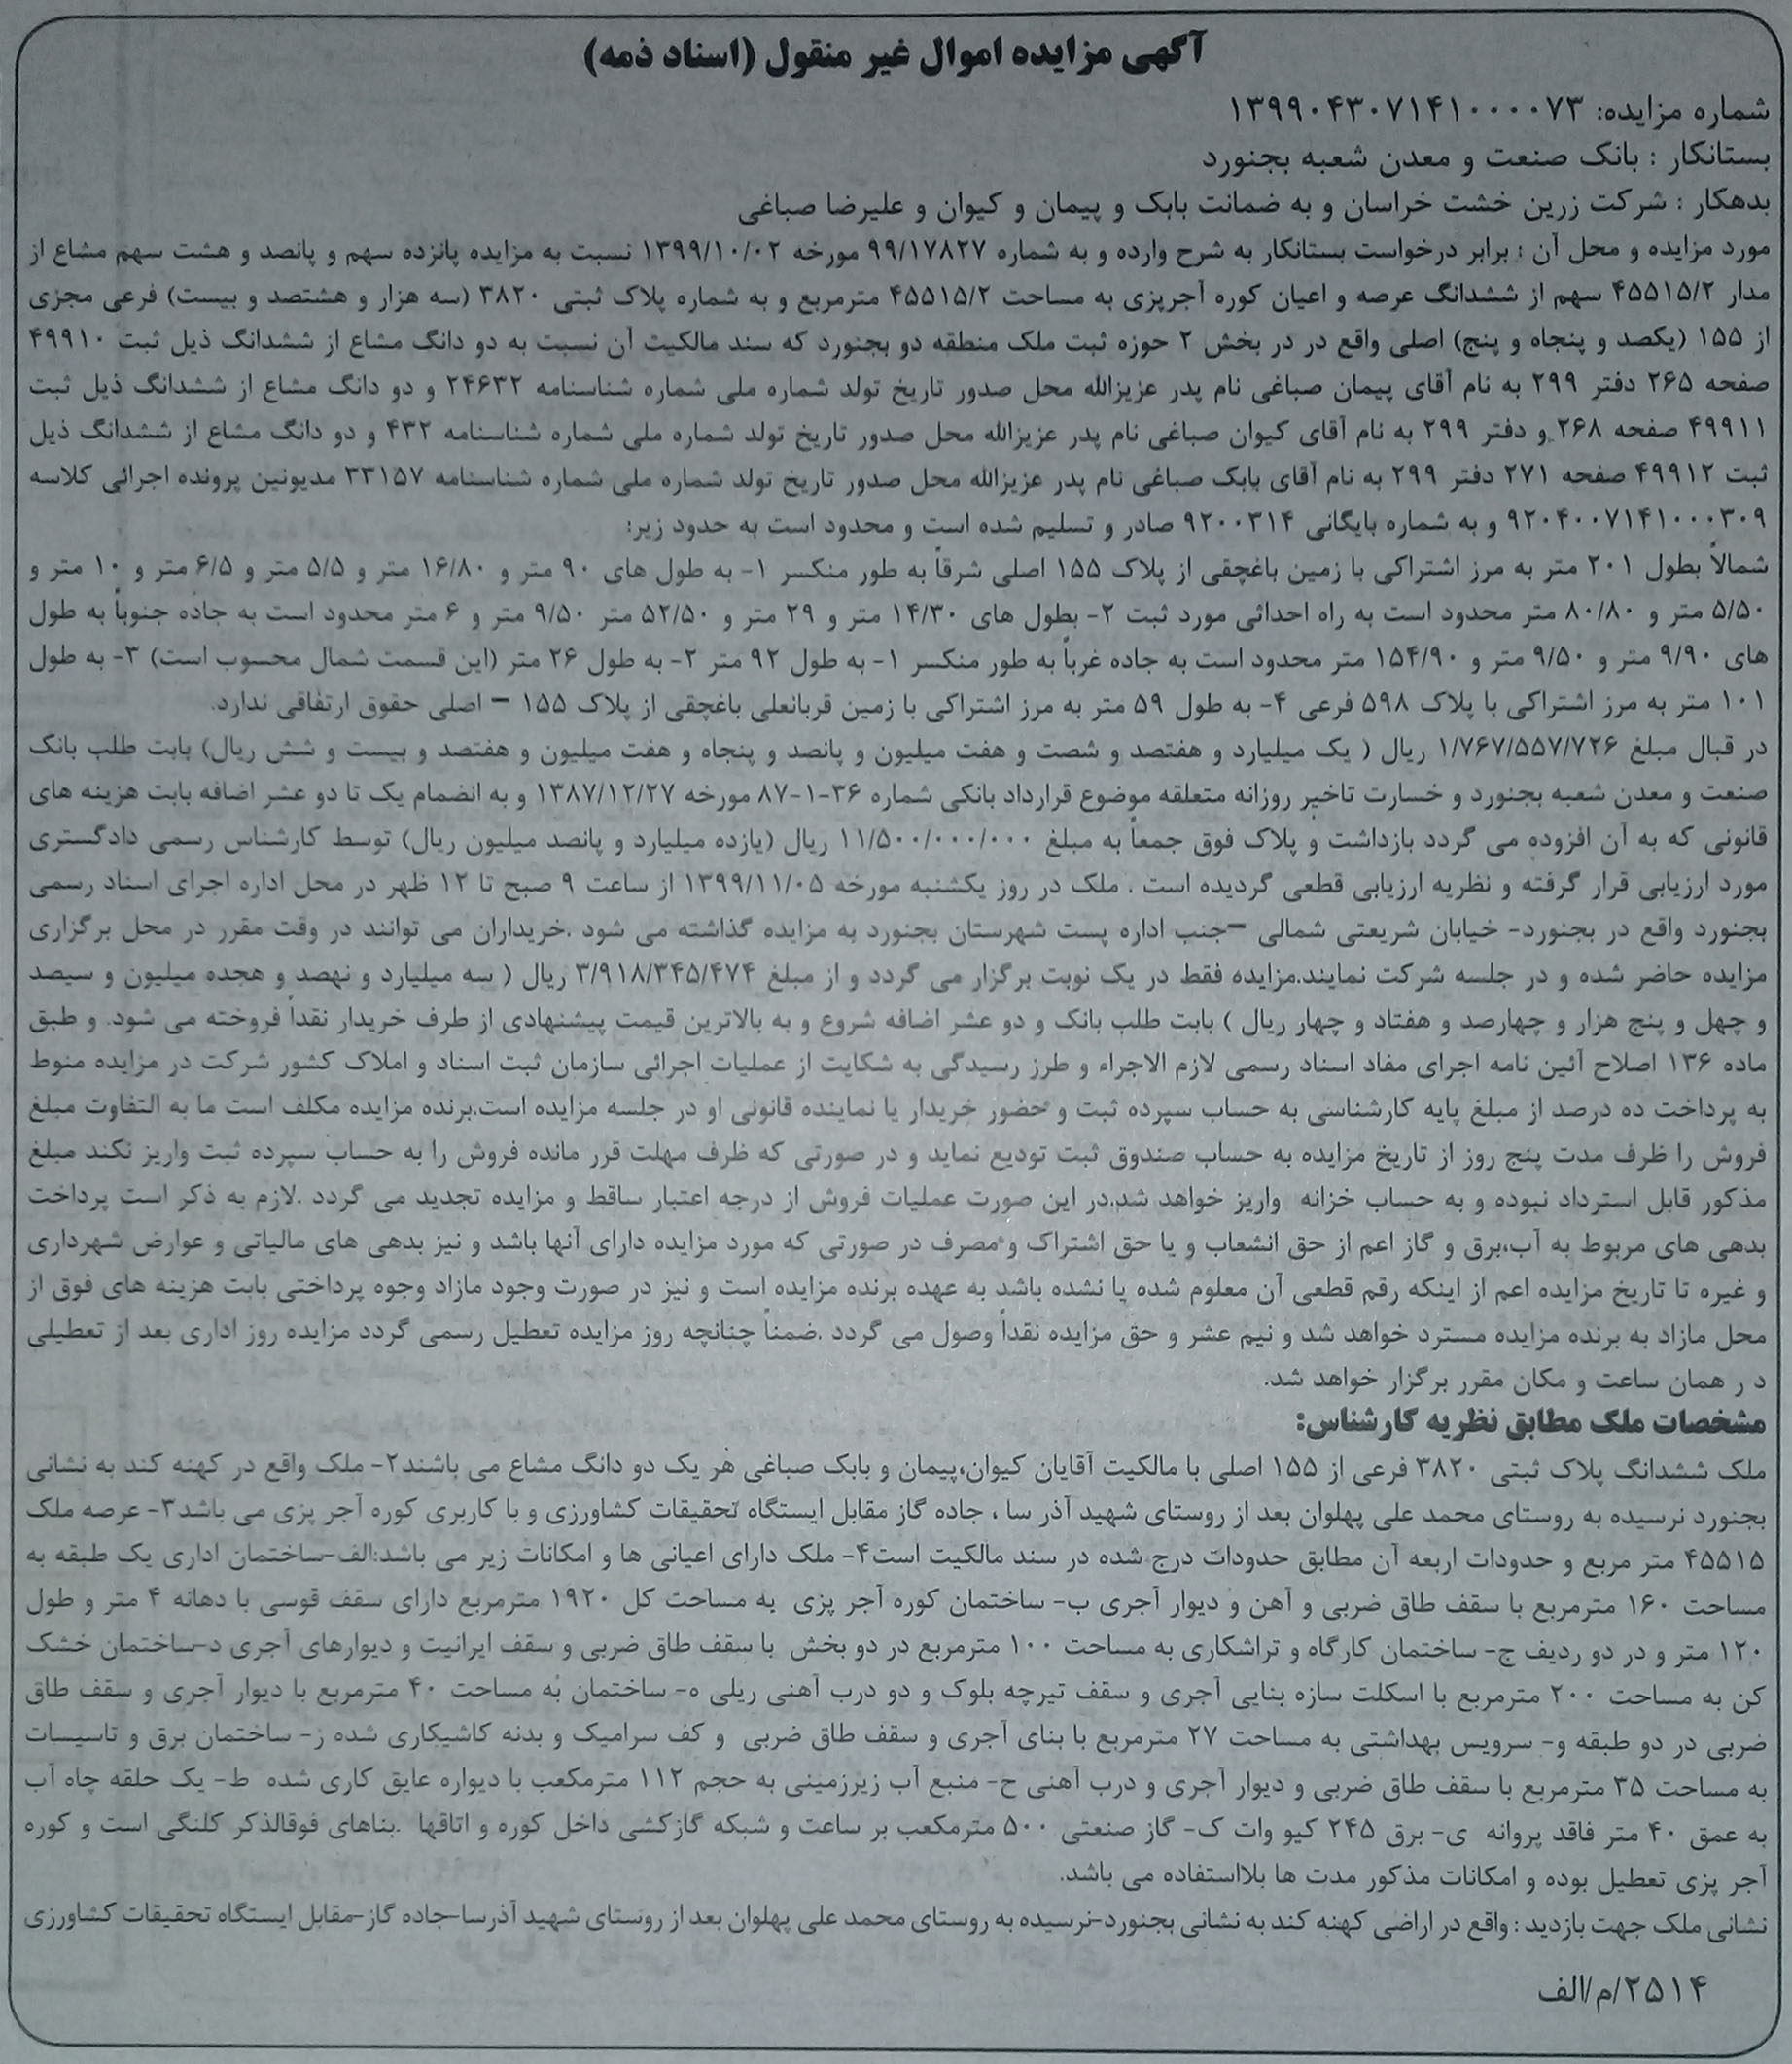 آگهی مزایده اموال غیر منقول (اسناد ذمه)
شماره مزایده: ۱۳۹۹۰۴۳۰۷۱۴۱۰۰۰۰۷۳
بستانکار : بانک صنعت و معدن شعبه بجنورد
بدهکار : شرکت زرین خشت خراسان و به ضمانت بابک و پیمان و کیوان و علیرضا صباغی
مورد مزایده و محل آن : برابر درخواست بستانکار به شرح وارده و به شماره ۹۹/۱۷۸۲۷ مورخه ۱۳۹۹/۱۰/۰۲ نسبت به مزایده پانزده سهم و پانصد و هشت سهم مشاع از
مدار ۴۵۵۱۵/۲ سهم از ششدانگ عرصه و اعیان کوره آجرپزی به مساحت ۴۵۵۱۵/۲ مترمربع و به شماره پلاک ثبتی ۳۸۲۰ (سه هزار و هشتصد و بیست) فرعی مجزی
از ۱۵۵ (یکصد و پنجاه و پنج) اصلی واقع در در بخش ۲ حوزه ثبت ملک منطقه دو بجنورد که سند مالکیت آن نسبت به دو دانگ مشاع از ششدانگ ذیل ثبت ۴۹۹۱۰
صفحه ۲۶۵ دفتر ۲۹۹ به نام آقای پیمان صباغی نام پدر عزیزالله محل صدور تاریخ تولد شماره ملی شماره شناسنامه ۲۴۶۳۲ و دو دانگ مشاع از ششدانگ ذیل ثبت
۴۹۹۱۱ صفحه ۲۶۸ و دفتر ۲۹۹ به نام آقای کیوان صباغی نام پدر عزیزالله محل صدور تاریخ تولد شماره ملی شماره شناسنامه ۴۳۲ و دو دانگ مشاع از ششدانگ ذیل
ثبت ۴۹۹۱۲ صفحه ۲۷۱ دفتر ۲۹۹ به نام آقای بابک صباغی نام پدر عزیزالله محل صدور تاریخ تولد شماره ملی شماره شناسنامه ۳۳۱۵۷ مدیونین پرونده اجرائی کلاسه
۹۲۰۴۰۰۷۱۴۱۰۰۰۳۰۹ و به شماره بایگانی ۹۲۰۰۳۱۴ صادر و تسلیم شده است و محدود است به حدود زیر:
شمالاً بطول ۲۰۱ متر به مرز اشتراکی با زمین باغچقی از پلاک ۱۵۵ اصلی شرقاً به طور منکسر ۱- به طول های ۹۰ متر و ۱۶/۸۰ متر و ۵/۵ متر و ۶/۵ متر و ۱۰ متر و
۵/۵۰ متر و ۸۰/۸۰ متر محدود است به راه احداثی مورد ثبت ۲- بطول های ۱۴/۳۰ متر و ۲۹ متر و ۵۲/۵۰ متر ۹/۵۰ متر و ۶ متر محدود است به جاده جنوباً به طول
های ۹/۹۰ متر و ۹/۵۰ متر و ۱۵۴/۹۰ متر محدود است به جاده غرباً به طور منکسر ۱- به طول ۹۲ متر ۲- به طول ۲۶ متر (این قسمت شمال محسوب است) ۳- به طول
۱۰۱ متر به مرز اشتراکی با پلاک ۵۹۸ فرعی ۴- به طول ۵۹ متر به مرز اشتراکی با زمین قربانعلی باغچقی از پلاک ۱۵۵ – اصلی حقوق ارتفاقی ندارد.
در قبال مبلغ ۱/۷۶۷/۵۵۷/۷۲۶ ریال ( یک میلیارد و هفتصد و شصت و هفت میلیون و پانصد و پنجاه و هفت میلیون و هفتصد و بیست و شش ریال) بابت طلب بانک
صنعت و معدن شعبه بجنورد و خسارت تاخیر روزانه متعلقه موضوع قرارداد بانکی شماره ۳۶-۱-۸۷ مورخه ۱۳۸۷/۱۲/۲۷ و به انضمام یک تا دو عشر اضافه بابت هزینه های
قانونی که به آن افزوده می گردد بازداشت و پلاک فوق جمعاً به مبلغ ۱۱/۵۰۰/۰۰۰/۰۰۰ ریال (یازده میلیارد و پانصد میلیون ریال) توسط کارشناس رسمی دادگستری
مورد ارزیابی قرار گرفته و نظریه ارزیابی قطعی گردیده است . ملک در روز یکشنبه مورخه ۱۳۹۹/۱۱/۰۵ از ساعت ۹ صبح تا ۱۲ ظهر در محل اداره اجرای اسناد رسمی
بجنورد واقع در بجنورد- خیابان شریعتی شمالی –جنب اداره پست شهرستان بجنورد به مزایده گذاشته می شود .خریداران می توانند در وقت مقرر در محل برگزاری
مزایده حاضر شده و در جلسه شرکت نمایند.مزایده فقط در یک نوبت برگزار می گردد و از مبلغ ۳/۹۱۸/۳۴۵/۴۷۴ ریال ( سه میلیارد و نهصد و هجده میلیون و سیصد
و چهل و پنج هزار و چهارصد و هفتاد و چهار ریال ) بابت طلب بانک و دو عشر اضافه شروع و به بالاترین قیمت پیشنهادی از طرف خریدار نقداً فروخته می شود. و طبق
ماده ۱۳۶ اصلاح آئین نامه اجرای مفاد اسناد رسمی لازم الاجراء و طرز رسیدگی به شکایت از عملیات اجرائی سازمان ثبت اسناد و املاک کشور شرکت در مزایده منوط
به پرداخت ده درصد از مبلغ پایه کارشناسی به حساب سپرده ثبت و حضور خریدار یا نماینده قانونی او در جلسه مزایده است.برنده مزایده مکلف است ما به التفاوت مبلغ
فروش را ظرف مدت پنج روز از تاریخ مزایده به حساب صندوق ثبت تودیع نماید و در صورتی که ظرف مهلت قرر مانده فروش را به حساب سپرده ثبت واریز نکند مبلغ
مذکور قابل استرداد نبوده و به حساب خزانه واریز خواهد شد.در این صورت عملیات فروش از درجه اعتبار ساقط و مزایده تجدید می گردد .لازم به ذکر است پرداخت
بدهی های مربوط به آب،برق و گاز اعم از حق انشعاب و یا حق اشتراک و مصرف در صورتی که مورد مزایده دارای آنها باشد و نیز بدهی های مالیاتی و عوارض شهرداری
و غیره تا تاریخ مزایده اعم از اینکه رقم قطعی آن معلوم شده یا نشده باشد به عهده برنده مزایده است و نیز در صورت وجود مازاد وجوه پرداختی بابت هزینه های فوق از
محل مازاد به برنده مزایده مسترد خواهد شد و نیم عشر و حق مزایده نقداً وصول می گردد .ضمناً چنانچه روز مزایده تعطیل رسمی گردد مزایده روز اداری بعد از تعطیلی
د ر همان ساعت و مکان مقرر برگزار خواهد شد.
مشخصات ملک مطابق نظریه کارشناس:
ملک ششدانگ پلاک ثبتی ۳۸۲۰ فرعی از ۱۵۵ اصلی با مالکیت آقایان کیوان،پیمان و بابک صباغی هر یک دو دانگ مشاع می باشند۲- ملک واقع در کهنه کند به نشانی
بجنورد نرسیده به روستای محمد علی پهلوان بعد از روستای شهید آذر سا ، جاده گاز مقابل ایستگاه تحقیقات کشاورزی و با کاربری کوره آجر پزی می باشد۳- عرصه ملک
۴۵۵۱۵ متر مربع و حدودات اربعه آن مطابق حدودات درج شده در سند مالکیت است۴- ملک دارای اعیانی ها و امکانات زیر می باشد:الف-ساختمان اداری یک طبقه به
مساحت ۱۶۰ مترمربع با سقف طاق ضربی و آهن و دیوار آجری ب- ساختمان کوره آجر پزی به مساحت کل ۱۹۲۰ مترمربع دارای سقف قوسی با دهانه ۴ متر و طول
۱۲۰ متر و در دو ردیف ج- ساختمان کارگاه و تراشکاری به مساحت ۱۰۰ مترمربع در دو بخش با سقف طاق ضربی و سقف ایرانیت و دیوارهای آجری د-ساختمان خشک
کن به مساحت ۲۰۰ مترمربع با اسکلت سازه بنایی آجری و سقف تیرچه بلوک و دو درب آهنی ریلی ه- ساختمان به مساحت ۴۰ مترمربع با دیوار آجری و سقف طاق
ضربی در دو طبقه و- سرویس بهداشتی به مساحت ۲۷ مترمربع با بنای آجری و سقف طاق ضربی و کف سرامیک و بدنه کاشیکاری شده ز- ساختمان برق و تاسیسات
به مساحت ۳۵ مترمربع با سقف طاق ضربی و دیوار آجری و درب آهنی ح- منبع آب زیرزمینی به حجم ۱۱۲ مترمکعب با دیواره عایق کاری شده ط- یک حلقه چاه آب
به عمق ۴۰ متر فاقد پروانه ی- برق ۲۴۵ کیو وات ک- گاز صنعتی ۵۰۰ مترمکعب بر ساعت و شبکه گازکشی داخل کوره و اتاقها .بناهای فوقالذکر کلنگی است و کوره
آجر پزی تعطیل بوده و امکانات مذکور مدت ها بلااستفاده می باشد.
نشانی ملک جهت بازدید : واقع در اراضی کهنه کند به نشانی بجنورد-نرسیده به روستای محمد علی پهلوان بعد از روستای شهید آذرسا-جاده گاز-مقابل ایستگاه تحقیقات کشاورزی
۲۵۱۴/م/الف